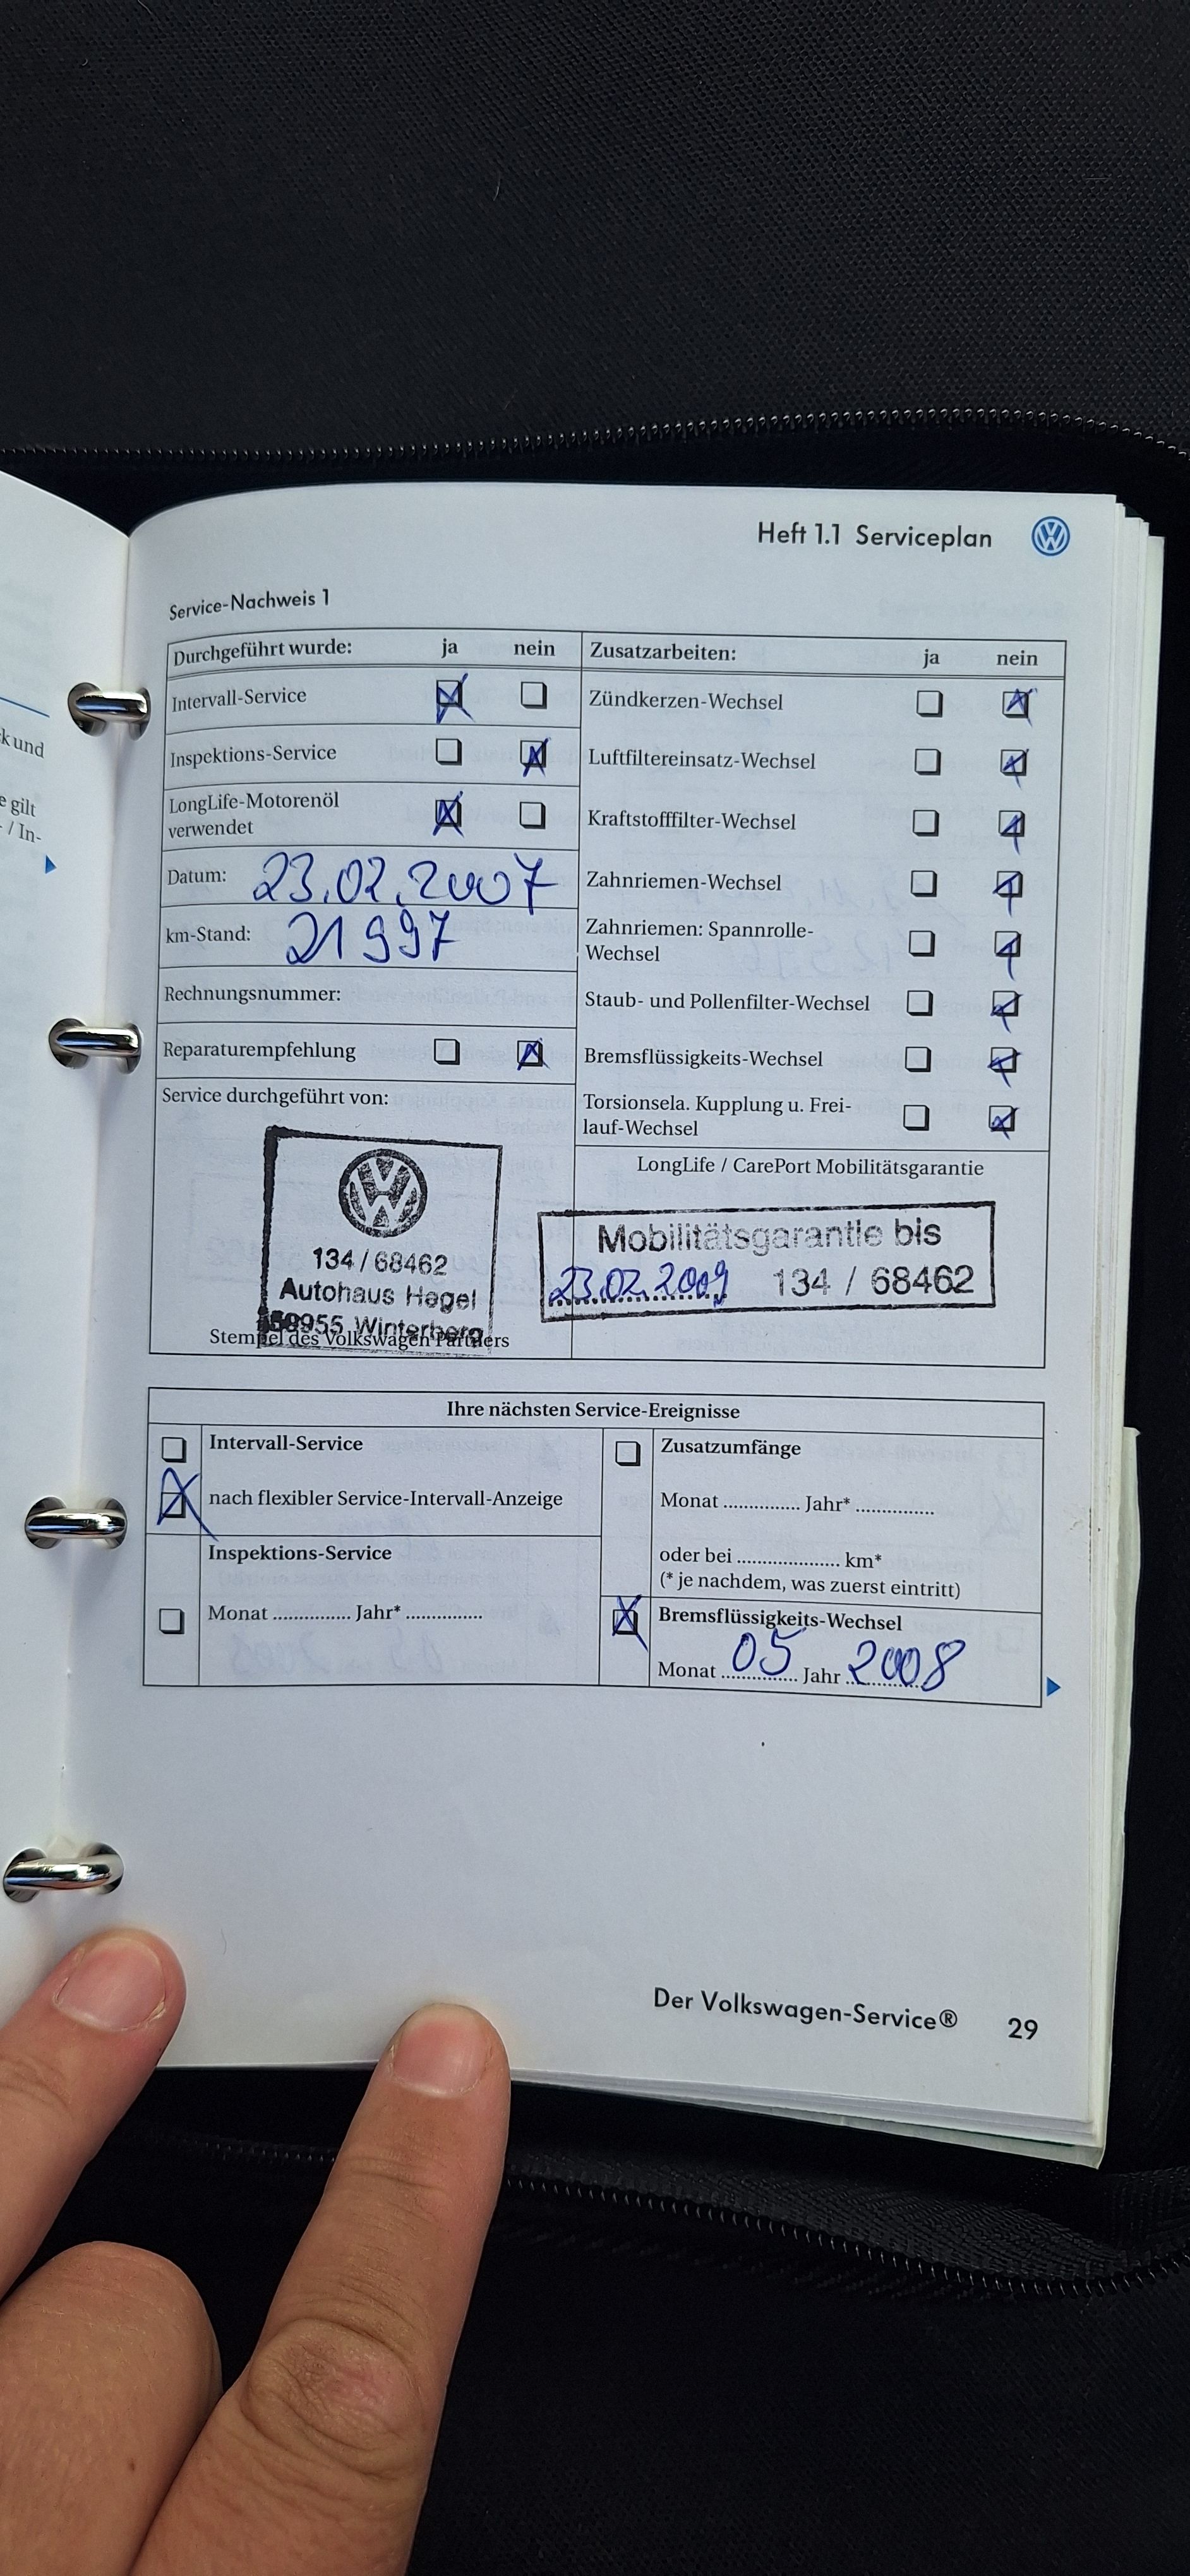 k und
e gilt
- / In-
Heft 1.1 Serviceplan
Service-Nachweis 1
Durchgeführt wurde: ja nein
Intervall-Service
Inspektions-Service
LongLife-Motorenöl
verwendet
Datum: 23.02.2007
km-Stand: 21997
Rechnungsnummer:
Reparaturempfehlung
Service durchgeführt von:
134 / 68462
Autohaus Hegel
59955 Winterberg
Stempel des Volkswagen Partners
Zusatzarbeiten: ja nein
Zündkerzen-Wechsel
Luftfiltereinsatz-Wechsel
Kraftstofffilter-Wechsel
Zahnriemen-Wechsel
Zahnriemen: Spannrolle-
Wechsel
Staub- und Pollenfilter-Wechsel
Bremsflüssigkeits-Wechsel
Torsionsela. Kupplung u. Frei-
lauf-Wechsel
LongLife / CarePort Mobilitätsgarantie
Mobilitätsgarantie bis
23.02.2009 134 / 68462
Ihre nächsten Service-Ereignisse
Intervall-Service
nach flexibler Service-Intervall-Anzeige
Inspektions-Service
Monat .............. Jahr* ..............
Zusatzumfänge
Monat .............. Jahr* ..............
oder bei ................... km*
(* je nachdem, was zuerst eintritt)
Bremsflüssigkeits-Wechsel
Monat 05 Jahr 2008
Der Volkswagen-Service® 29